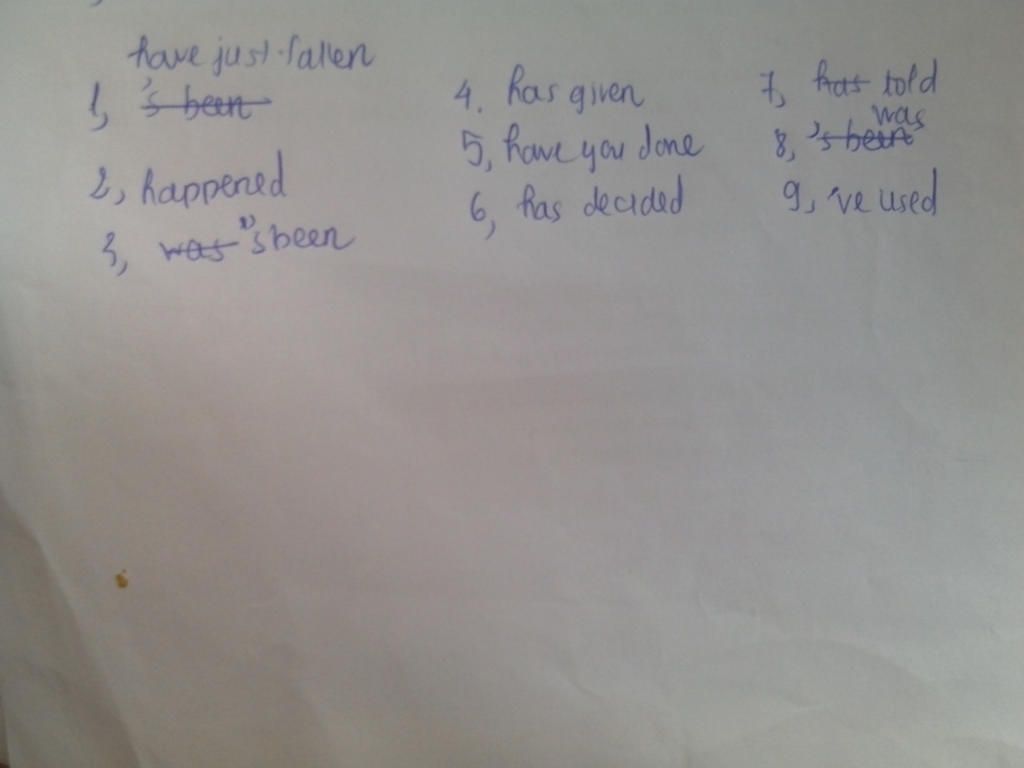 have just fallen
1, 's been
2, happened
3, was 's been
4. has given
5, have you done
6, has decided
7, has told
was
8, 's been
9, 've used